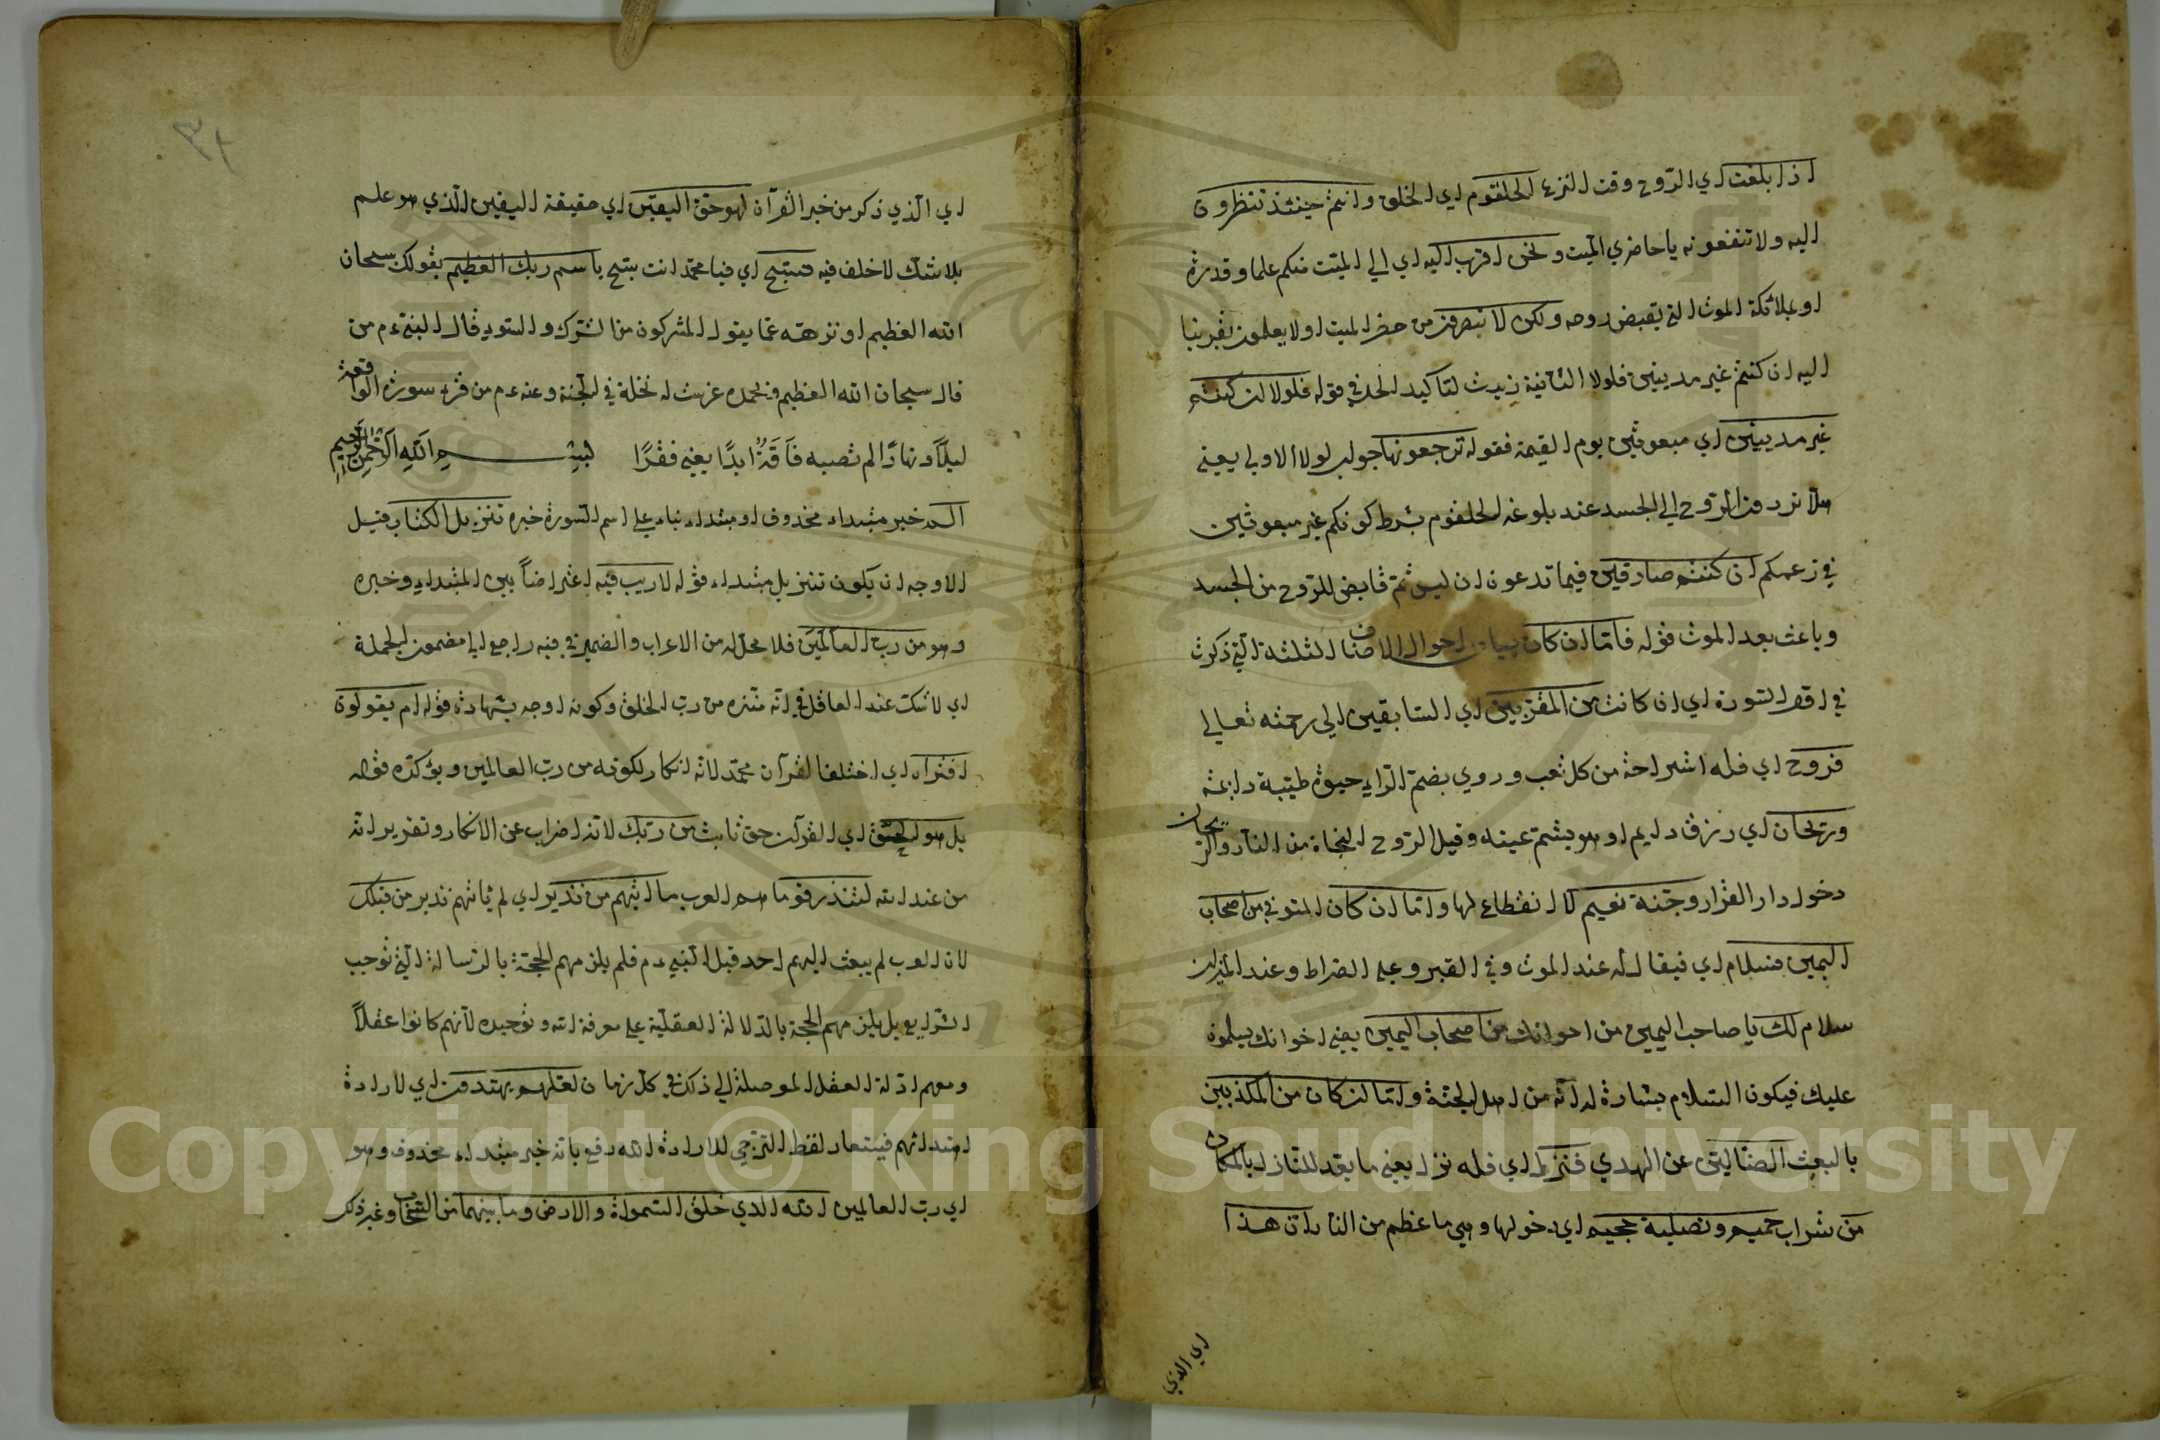 اذا بلغت اي الروح وقت النزع الحلقوم اي الحلق وانتم حينئذ تنظرون
اليه ولا تنفعونه يا حاضري الميت ونحن اقرب اليه اي الي الميت منكم علما وقدرة
او بملائكة الموت التي يقبض روحه ولكن لا تبصرون من حضر الميت اولا يعلمون بقربنا
اليه ان كنتم غير مدينين فلولا الثانية زيدت لتاكيد الحث في قوله فلولا ان كنتم
غير مدينين اي مبعوثين يوم القيمة فقوله ترجعونها جواب لولا الاولي يعني
هلا تردون الروح الي الجسد عند بلوغه الحلقوم بشرط كونكم غير مبعوثين
في زعمكم ان كنتم صادقين فيما تدعون ان ليس ثم قابض للروح من الجسد
وباعث بعد الموت قوله فاما ان كان بيان احوال الاصناف الثلثة التي ذكرت
في اول السورة اي ان كانت من المقربين اي السابقين الي رحمته تعالي
فروح اي فله استراحة من كل تعب وروي بضم الراء حيوة طيبة دائمة
وريحان اي رزق دايم او هو يشم عينه وقيل الروح النجاة من النار والريحان
دخول دار القرار وجنة نعيم لا انقطاع لها واما ان كان المتوفي من اصحاب
اليمين فسلام اي فيقال له عند الموت وفي القبر وعلي الصراط وعند الميزان
سلام لك يا صاحب اليمين من اخوانك من اصحاب اليمين يعني اخوانك يسلمون
عليك فيكون السلام بشارة له انه من اهل الجنة واما ان كان من المكذبين
بالبعث الضالين عن الهدي فنزل اي فله نزل يعني ما يعد للنازل بالمكان
من شراب حميم وتصلية جحيم اي دخولها وهي ما عظم من النار ان هذا
اي الذي
٣٢
اي الذي ذكر من خبر القرآن لهو حق اليقين اي حقيقة اليقين الذي هو علم
بلا شك لا خلف فيه فسبح اي فيا محمد انت سبح باسم ربك العظيم بقولك سبحان
الله العظيم او نزهه عما يقول المشركون من الشرك والسوء قال النبي عم من
قال سبحان الله العظيم وبحمده غرست له نخلة في الجنة وعنه عم من قرء سورة الواقعة
ليلا ونهارا لم تصبه فاقة ابدا يعني فقرا بسم الله الرحمن الرحيم
الم خبر مبتداء محذوف او مبتداء بناء علي اسم السورة خبره تنزيل الكتاب قيل
الاوجه ان يكون تنزيل مبتداء قوله لا ريب فيه اعتراضا بين المبتداء وخبره
وهو من رب العالمين فلا محل له من الاعراب والضمير في فيه راجع الي مضمون الجملة
اي لا شك عند العاقل في انه منزه من رب الخلق وكونه اوجه بشهادة قوله ام يقولون
افتراه اي اختلق القرآن محمد لانه انكار لكونه من رب العالمين ويؤكده قوله
بل هو الحق اي القرآن حق ثابت من ربك لانه اضراب عن الانكار وتقرير انه
من عند الله لتنذر قوما هم العرب ما اتيهم من نذير اي لم ياتهم نذير من قبلك
لان العرب لم يبعث اليهم احد قبل النبي عم فلم يلزمهم الحجة بالرسالة التي توجب
الشرايع بل يلزمهم الحجة بالدلالة العقلية علي معرفة الله وتوحيده لانهم كانوا عقلا
ومعهم ادلة العقل الموصلة الي ذلك في كل زمان لعلهم يهتدون اي لارادة
اهتدائهم فيستعار لفظ الترجي للارادة الله رفع بانه خبر مبتداء محذوف وهو
اي رب العالمين الله الذي خلق السموات والارض وما بينهما من السحاب وغير ذلك